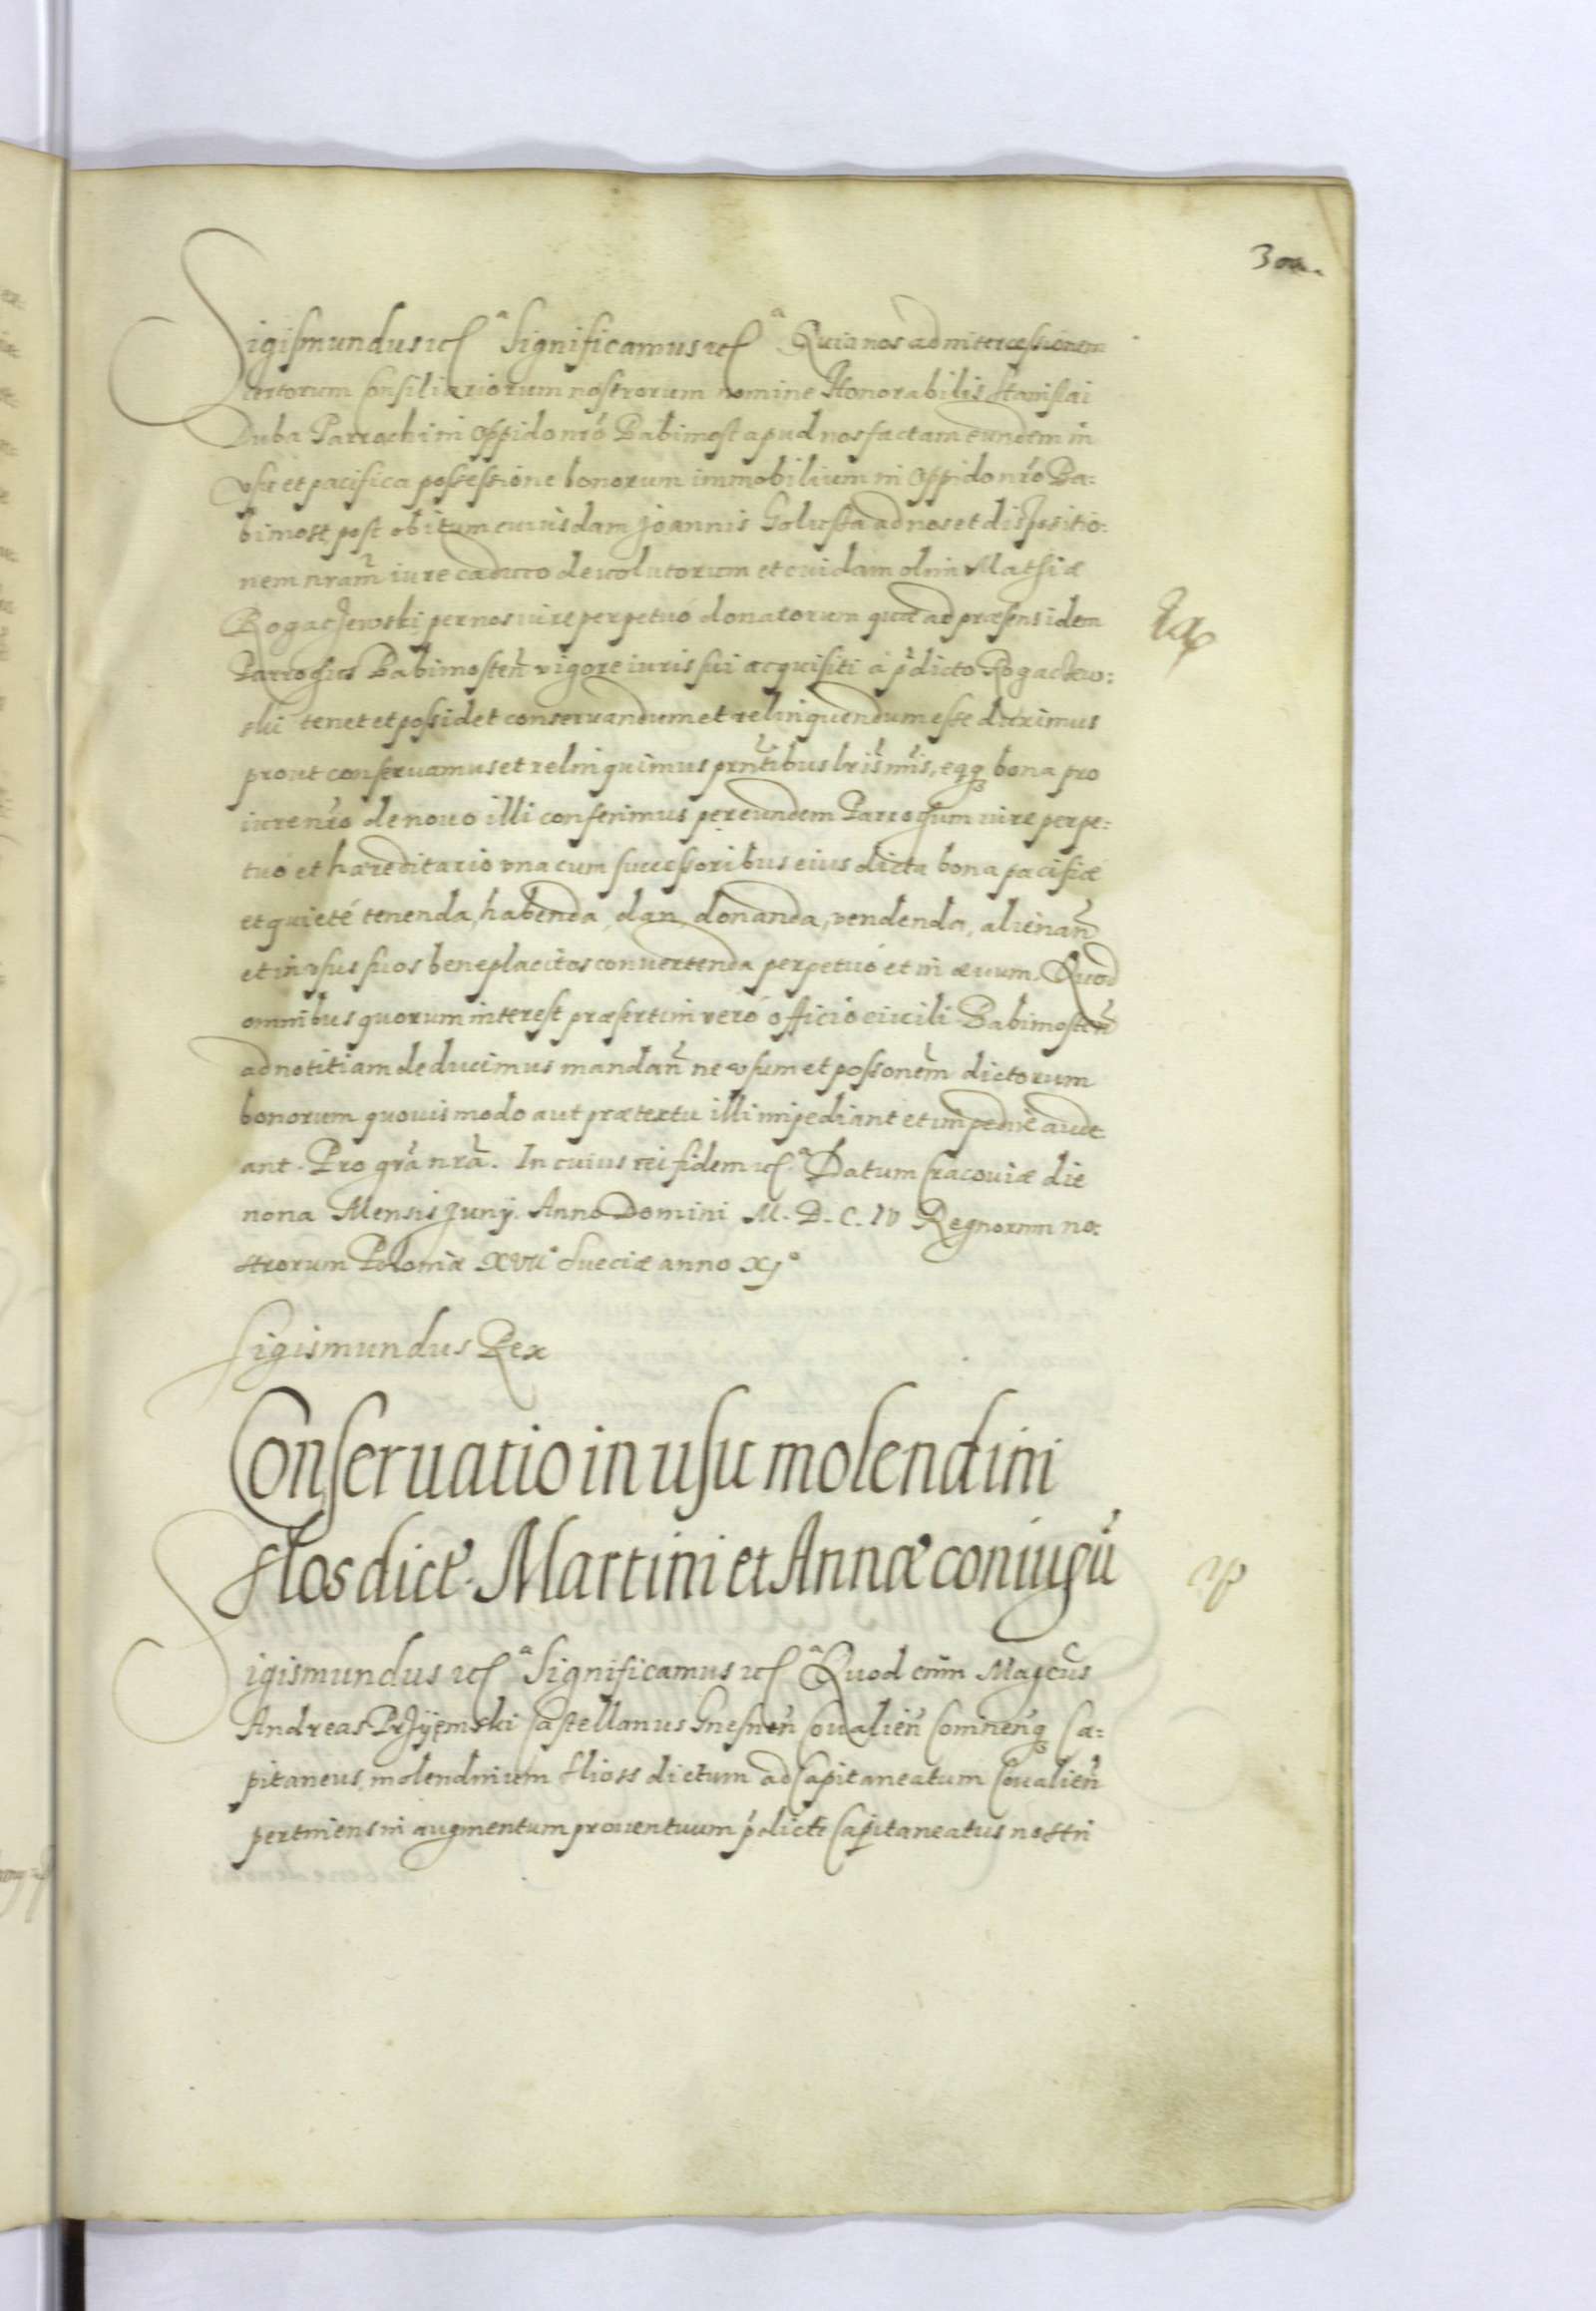 Sigismundus etc^a Significamus etc^a Quia nos ad intercessionem
certorum Consiliariorum nostrorum nomine Honorabilis Stanislai
Duba Parrochi in Oppido nr̃o Babimost apud nos factam eundem in
vsu et pacifica possessione bonorum immobilium in Oppido nr̃o Ba:
bimost, post obitum cuiusdam Joannis Golusta ad nos et dispositio:
nem nram̃ iure caduco deuolutorum et cuidam olim Mathiæ
Rogaczewski per nos iure perpetuó donatorum quæ ad præsens idem
Parrochus Babimosteñ vigore iuris sui acquisiti á p̃dicto Rogaczew:
ski tenet et possidet conseruandum et relinquendum esse duximus
prout conseruamus et relinquimus prñtibus lris̃ nr̃is, eaq̃ bona pro
iure nr̃o de nouo illi conferimus per eundem Parrochum iure perpe:
tuó et hæreditario vna cum successoribus eius dicta bona pacificé
et quieté tenenda, habenda, dan, donanda, vendenda, alienañ
et in vsus suos beneplacitos conuertenda perpetuó et in æuum. Quod
omnibus quorum interest præsertim veró officio ciuili Babimosteñ
ad notitiam deducimus mandañ ne vsum et possonem̃ dictorum
bonorum quouis modo aut prætextu illi impediant et impedire aude
ant. Pro grã nrã. In cuius rei fidem etc^a Datum Cracouiæ die
nona Mensis Junij. Anno Domini M. D. C. IV Regnorum no:
strorum Poloniæ XVII° Sueciæ anno XI°
Sigismundus Rex
Conseruatio in usu molendini
Slos dict. Martini et Annæ coniugũ
Sigismundus etc^a Significamus etc^a Quod cum Magcus̃
Andreas Przyjemski Castellanus Gnesneñ Coualieñ Comneñq̃ Ca:
pitaneus, molendinum Slioss dictum ad Capitaneatum Coualieñ
pertinens in augmentum prouentuum p̃dicti Capitaneatus nostri